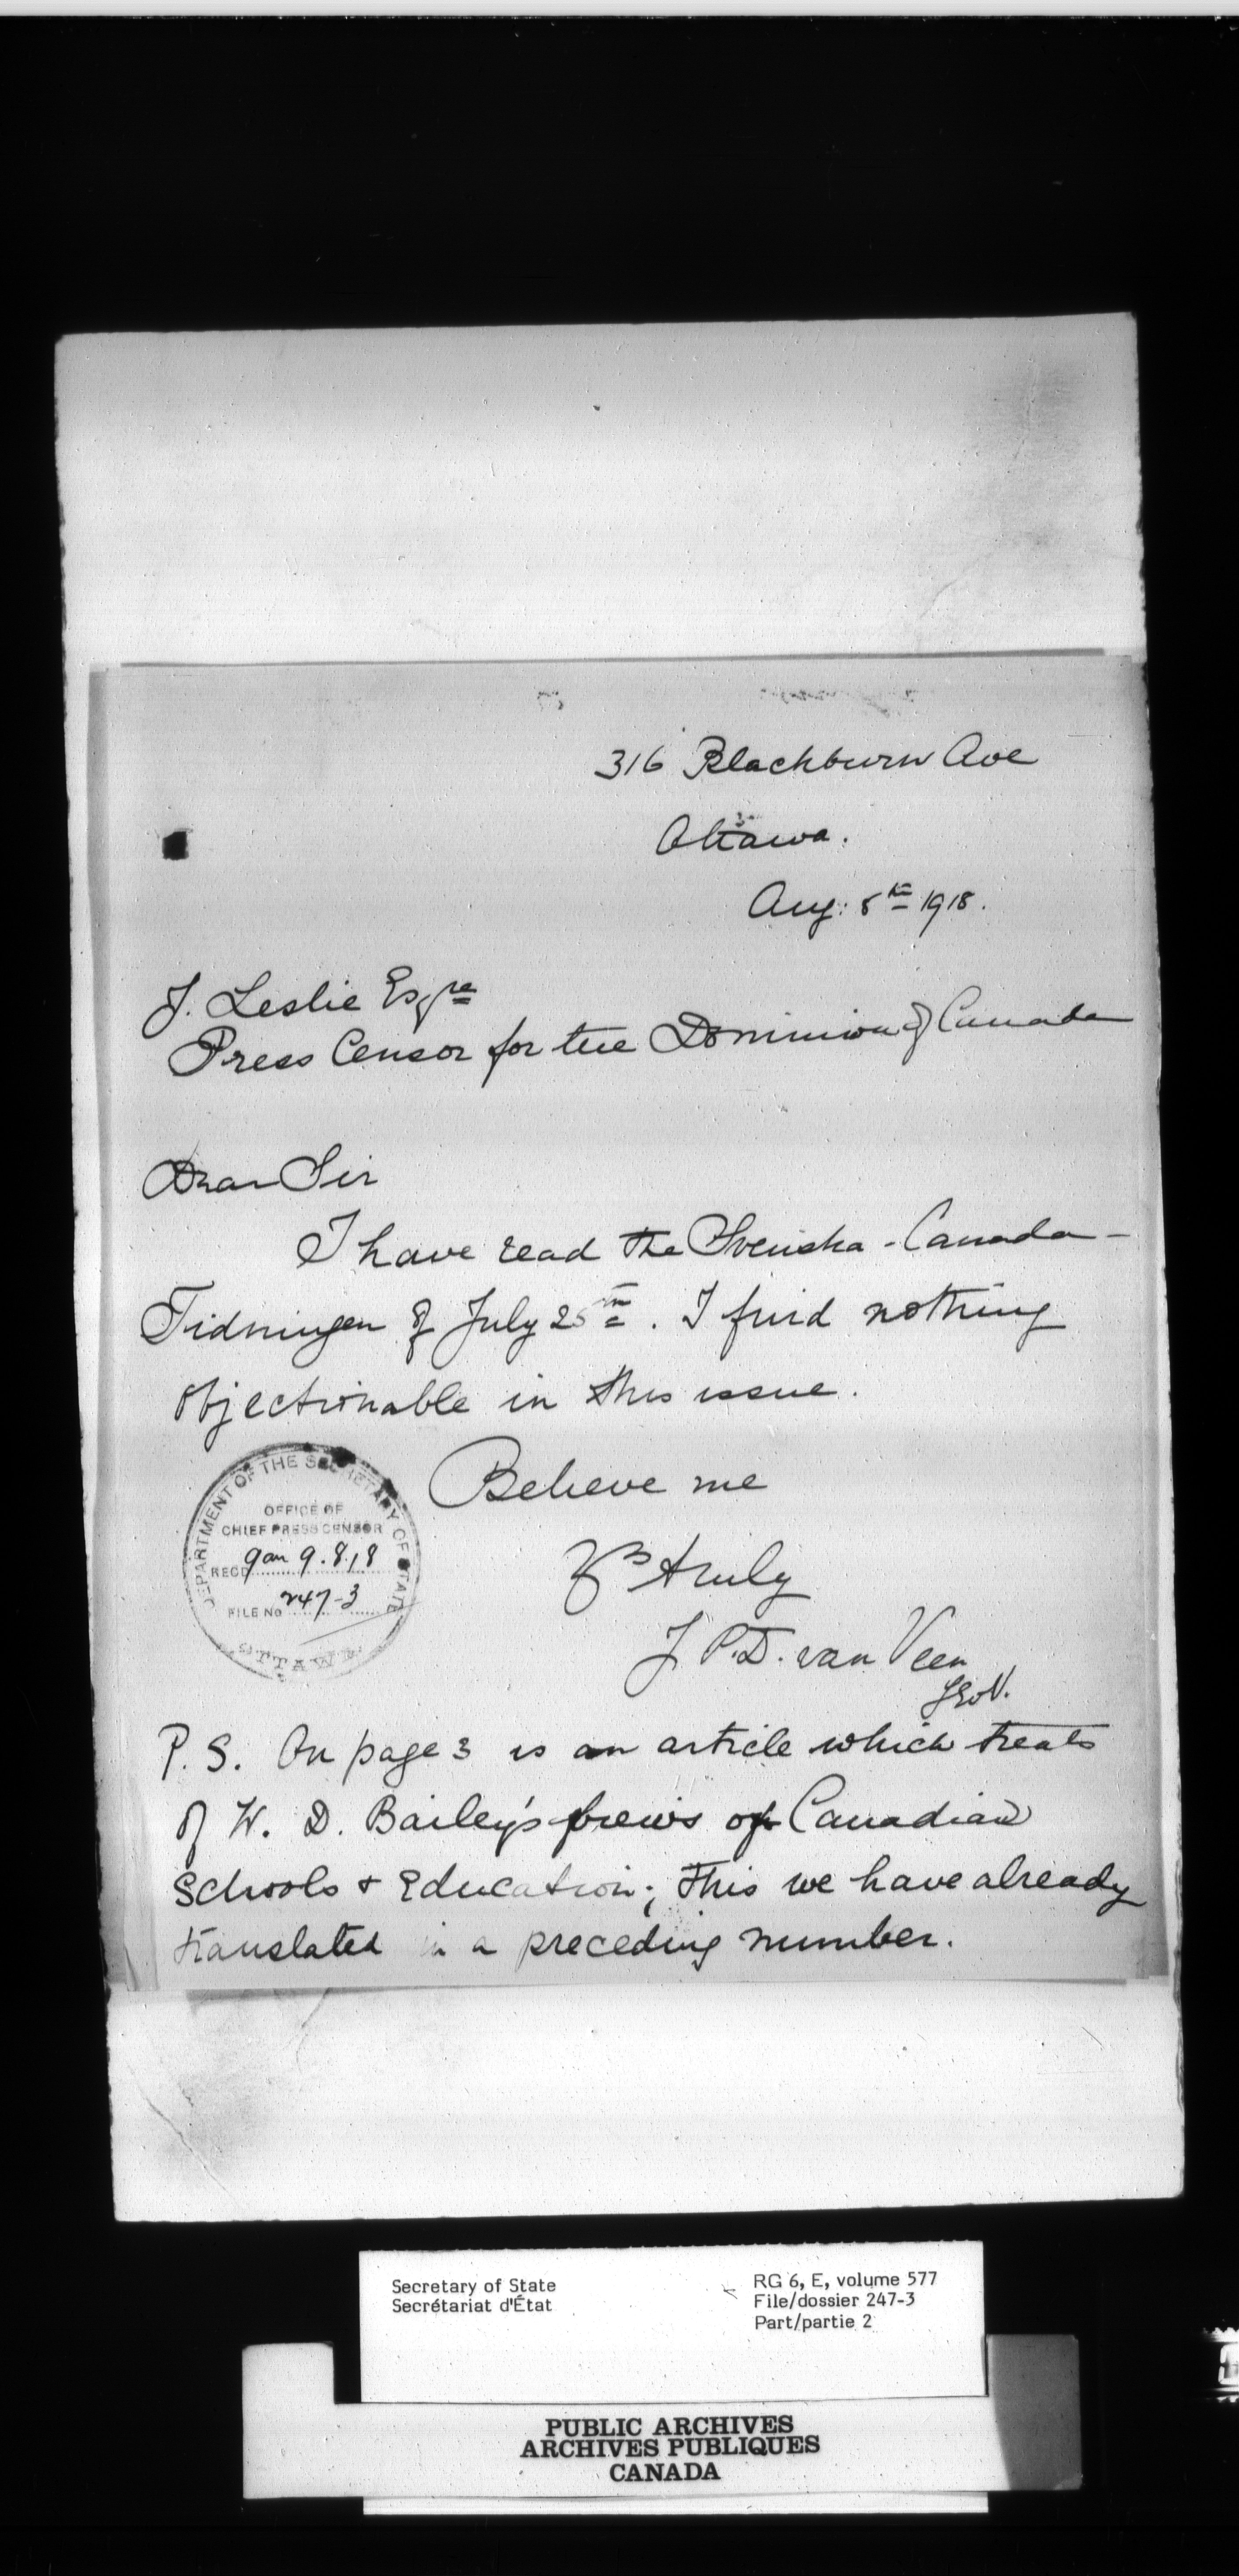 316 Blackburn Ave
Ottawa.
Aug: 8th 1918.
J. Leslie Esqre
Press Censor for the Dominion of Canada
Dear Sir
I have read the Svenska-Canada-
Tidningen of July 25th. I find nothing
objectionable in this issue.
Believe me
Yrs truly
J P.D. van Veen
P.S. On page 3 is an article which treats
of W. D. Bailey's views on Canadian
Schools & Education; this we have already
translated in a preceding number.
DEPARTMENT OF THE SECRETARY OF STATE
OFFICE OF
CHIEF PRESS CENSOR
RECD 9am 9.8.18
FILE NO 247-3
OTTAWA
Secretary of State
Secrétariat d'État
RG 6, E, volume 577
File/dossier 247-3
Part/partie 2
PUBLIC ARCHIVES
ARCHIVES PUBLIQUES
CANADA